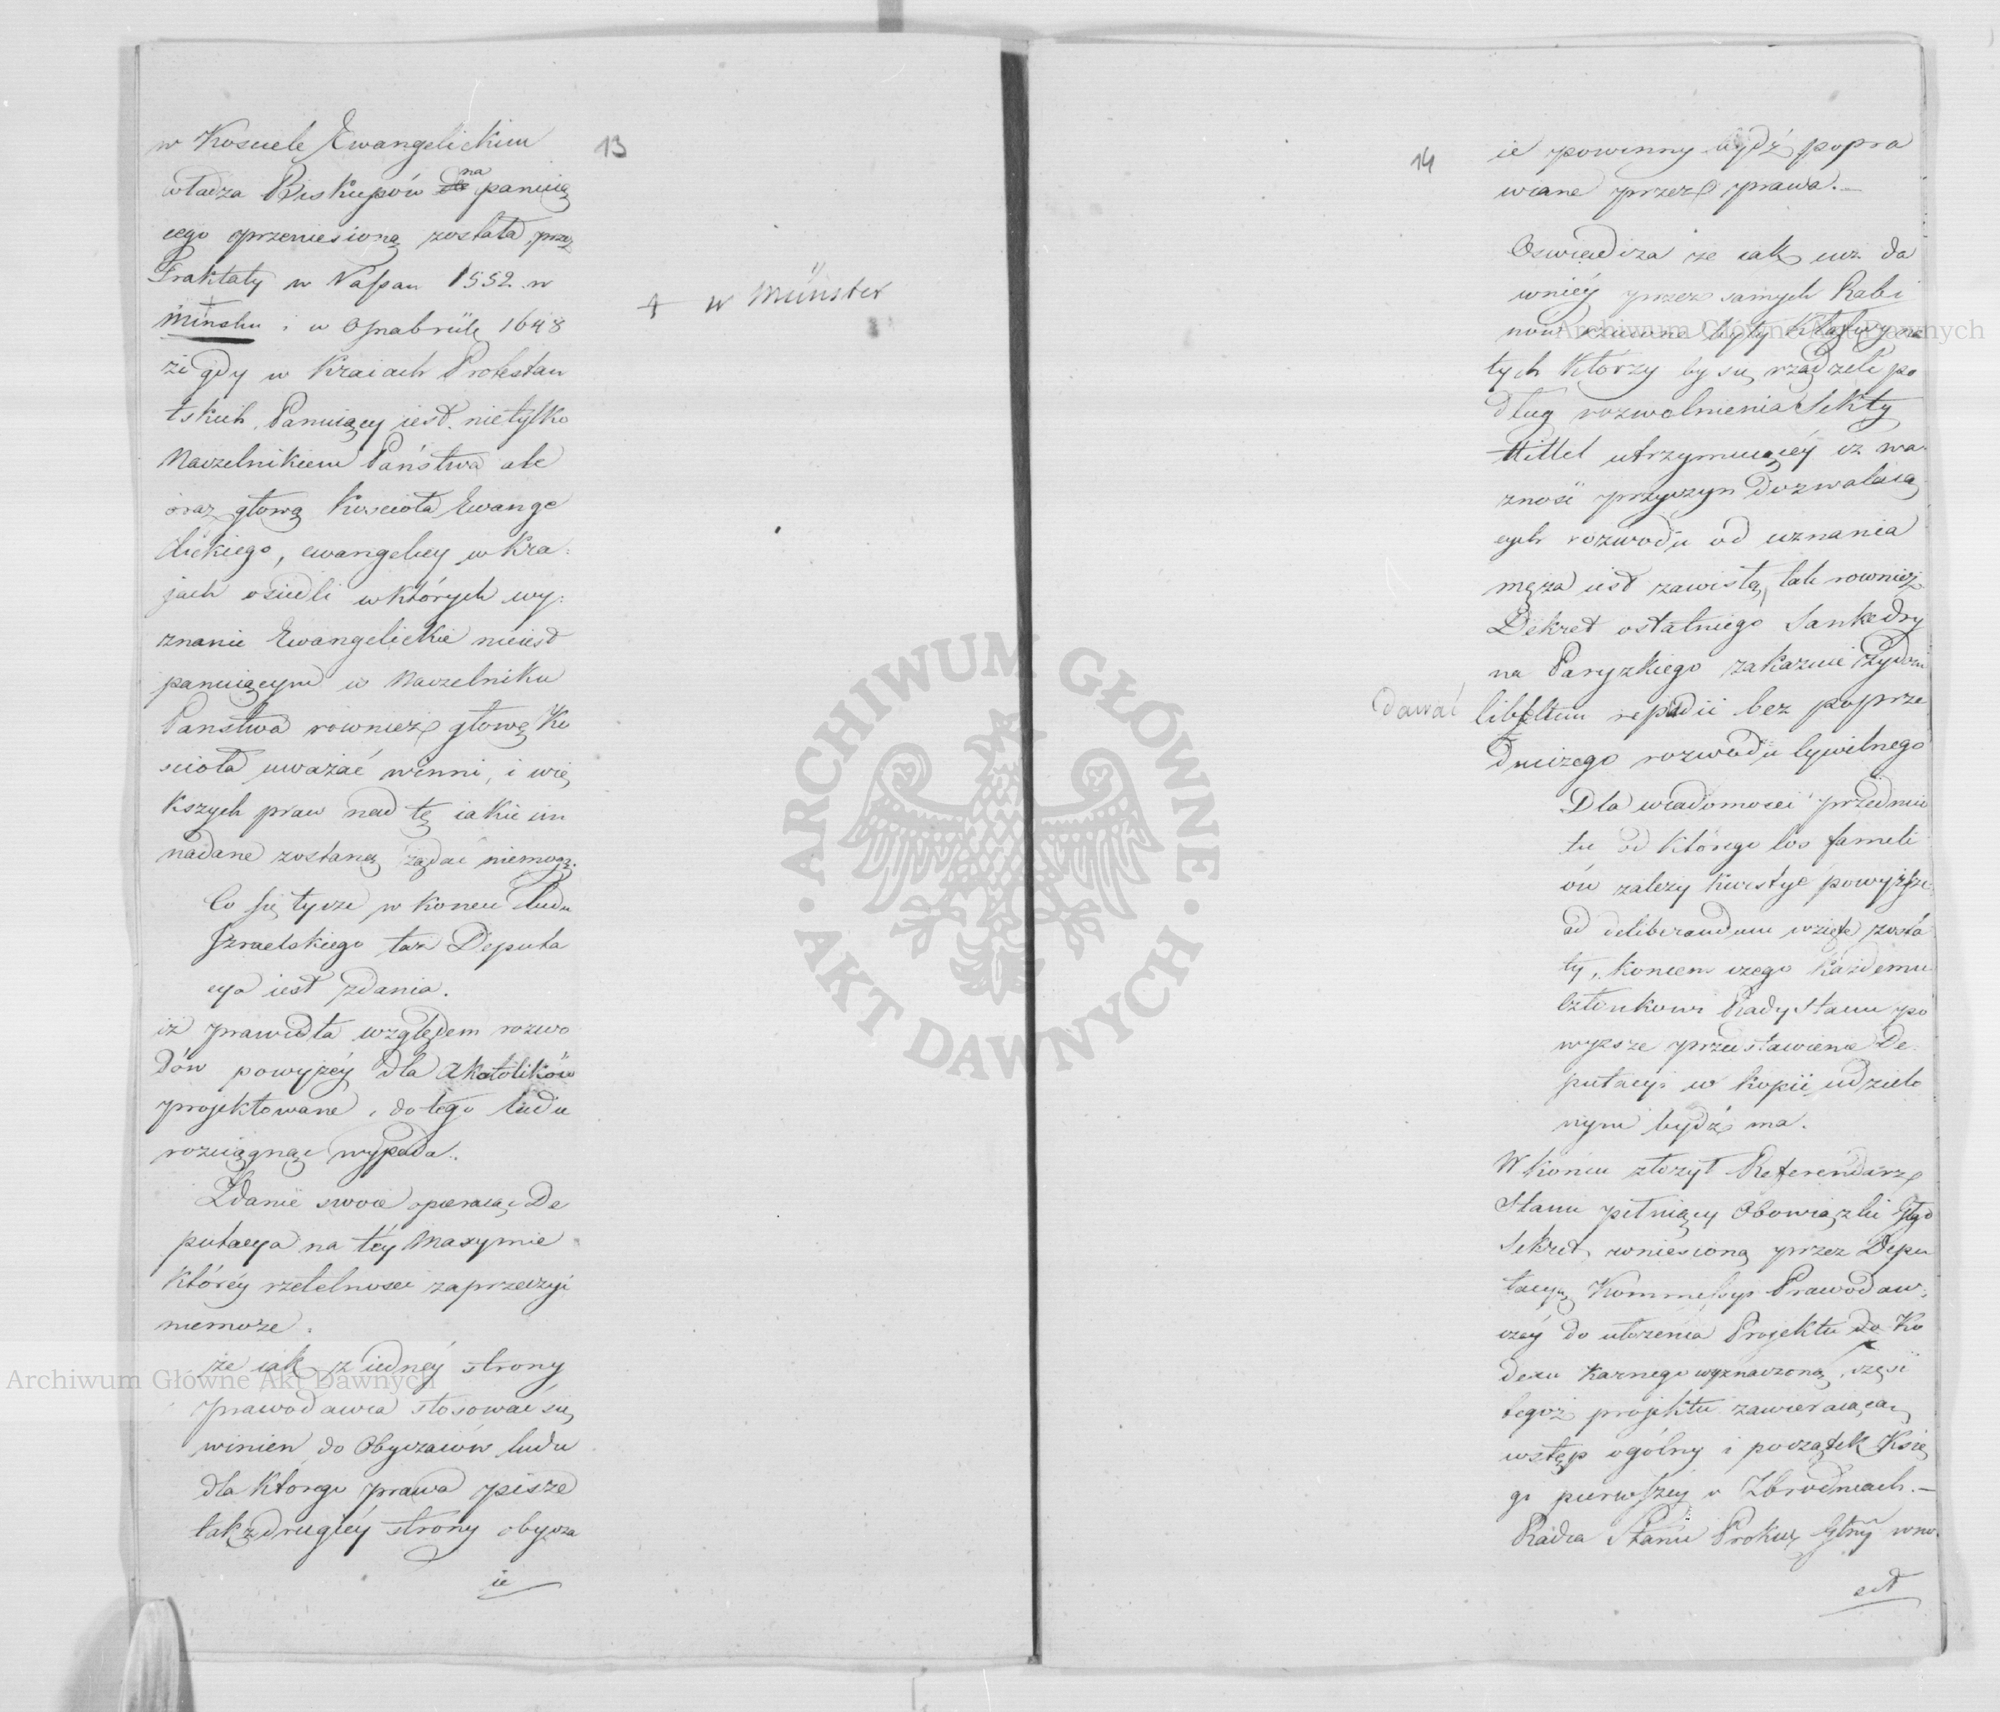 13
w Kosciele Ewangelickim
władza Biskupów na panuią
cego przeniesioną została, przez
Traktaty w Passau 1552. w
Minsku i w Osnabrück 1648
+ w Münster
że gdy w Kraiach Protestan
tskich, Panuiący iest nietylko
Naczelnikiem Państwa ale
oraz głową Kościoła Ewange
lickiego, ewangelicy w Kra:
jach osiedli w których wy:
znanie Ewangelickie nieiest
panuiącym w Naczelniku
Państwa również głowę Ko
scioła uważać winni, i wię
kszych praw nad te iakie im
nadane zostaną żądać niemogą.
Co się tycze w koncu ludu
Izraelskiego taż Deputa
cya iest zdania.
iż prawidła względem rozwo
dów powyżéy dla Akatolików
projektowane, do tego ludu
rozciągnąć wypada.
Zdanie swoie opieraiąc De
putacya na téy Maxymie
któréy rzetelnosci zaprzeczyć
niemoże.
że iak z iednéy strony
prawodawca stosować się
winien do Obyczaiów ludu
dla którego prawa pisze
tak z drugiéy strony obycza
ie
14
ie powinny bydź popra
wiane przez prawa.—
Oswiadcza że iak iuż da
wniéy przez samych Rabi
nów rzucone były Klątwy na
tych którzy by się rządzili po
dług rozwolnienia Sekty
Hillel utrzymuiącéy iż wa
żność przyczyn dozwalaią
cych rozwodu od uznania
męża iest zawisłą, tak rownież
Dekret ostatniego Sanhedry
na Paryzkiego zakazuie Żydom
dawać
libellum repudii bez poprze
dniczego rozwodu cywilnego
Dla wiadomosci przedmio
tu od którego los famili
ów zależy kwestye powyższe
ad deliberandum wzięte zosta
ły, koncem czego każdemu
Członkowi Rady Stanu po
wyższe przedstawienie De:
putacyi w kopii udzielo
nym bydź ma.
W końcu złożył Referendarz
Stanu pełniący Obowiązki Głgo
Sekret. wniesioną przez Depu
tacyą Kommissyi Prawodaw:
czéy do ułożenia Projektu do Ko
dexu Karnego wyznaczoną, część
tegoż projektu zawieraiącą
wstęp ogólny i początek Księ
gi pierwszéy o Zbrodniach.—
Radca Stanu Prokur Głny wno.
sił
Archiwum Główne Akt Dawnych
Archiwum Główne Akt Dawnych
ARCHIWUM GŁÓWNE
AKT DAWNYCH